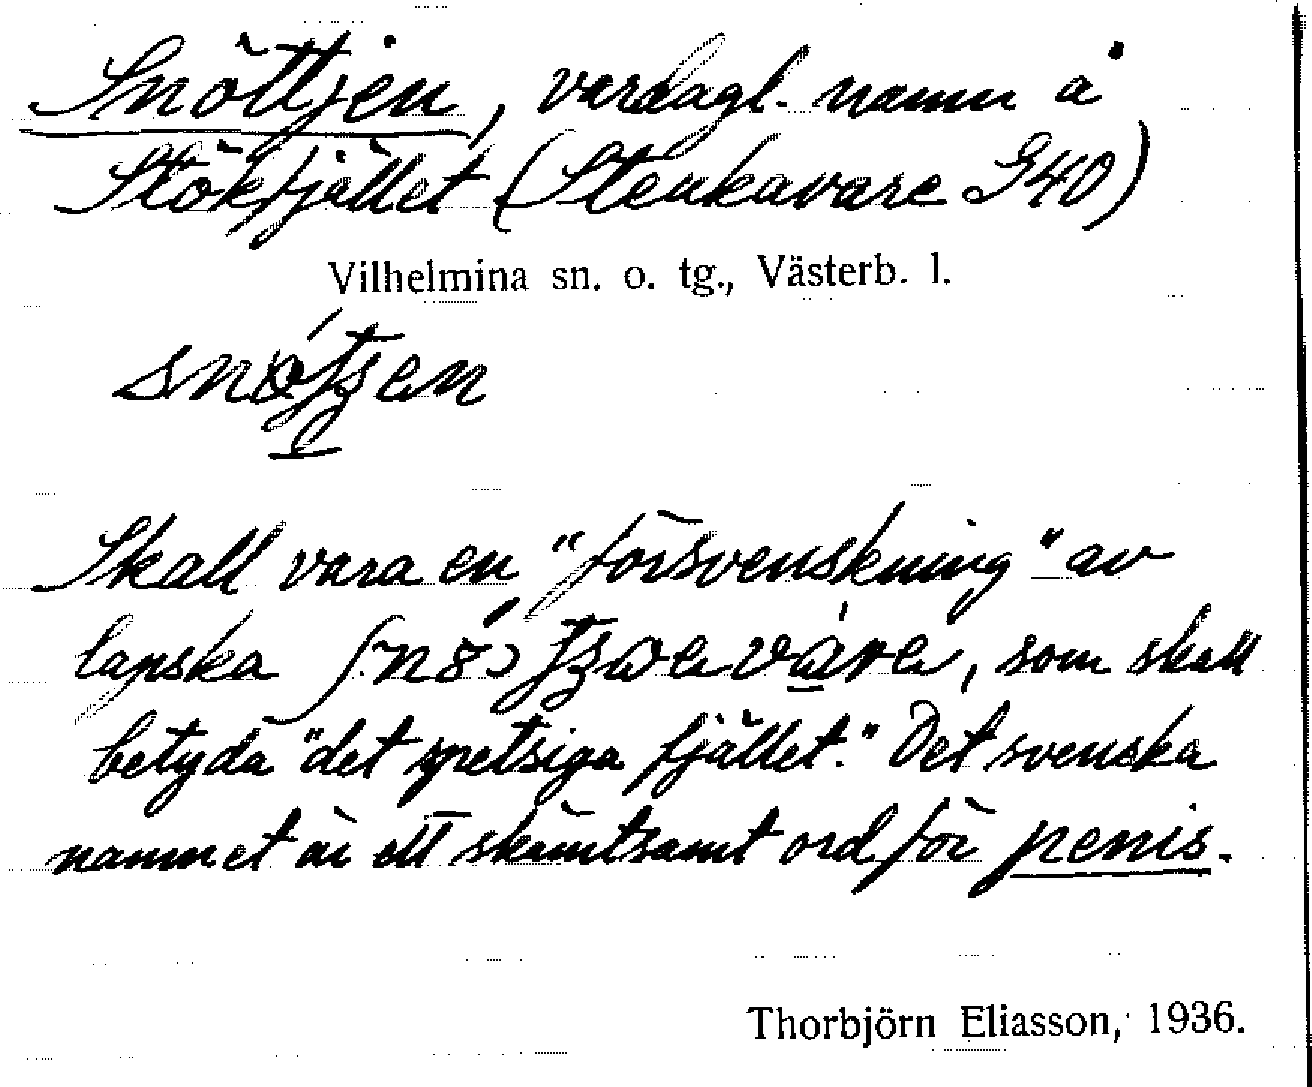 Snöttjen, vardagl. namn å
Stökfjället (Stenkavare G40)
Vilhelmina sn. o. tg., Västerb. l.
Skall vara en "försvenskning" av
lapska som skall
betyda "det spetsiga fjället." Det svenska
namnet är ett skämtsamt ord för penis.
Thorbjörn Eliasson, 1936.